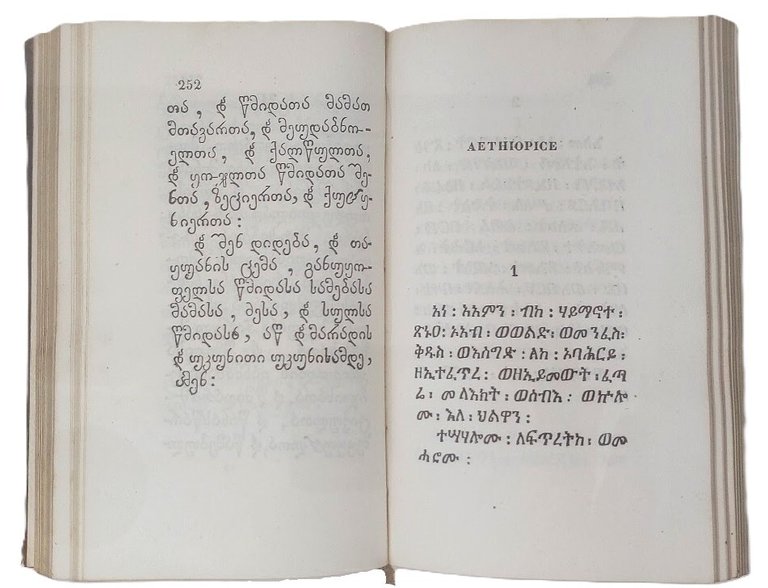 252
თა, და წმიდათა მამათ
მთავართა, და მეუდაბნო-
ელთა, და ქალწულთა,
და ყოველთა წმიდათა შე-
ნთა, ზეციერთა, და ქუეყ-
ნიერთა:
და შენ დიდება, და თა-
ყუანის ცემა, განუყო-
ფელსა წმიდასა სამებასა
მამასა, ძესა, და სულსა
წმიდასა, აწ და მარადის
და უკუნითი უკუნისამდე,
ამენ:
AETHIOPICE
1
አነ፡ አአምን፡ ብከ፡ ሃይማኖተ፡
ጽኑዐ፡ ኦአብ፡ ወወልድ፡ ወመንፈስ፡
ቅዱስ፡ ወእሰግድ፡ ለከ፡ ኦባሕርይ፡
ዘኢተፈጥረ፡ ወዘኢይመውት፡ ፈጣ
ሬ፡ መለእክት፡ ወሰብእ፡ ወኵሎ
ሙ፡ እለ፡ ህልዋን፡
ተሣሃሎሙ፡ ለፍጥረትከ፡ ወመ
ሓሮሙ፡